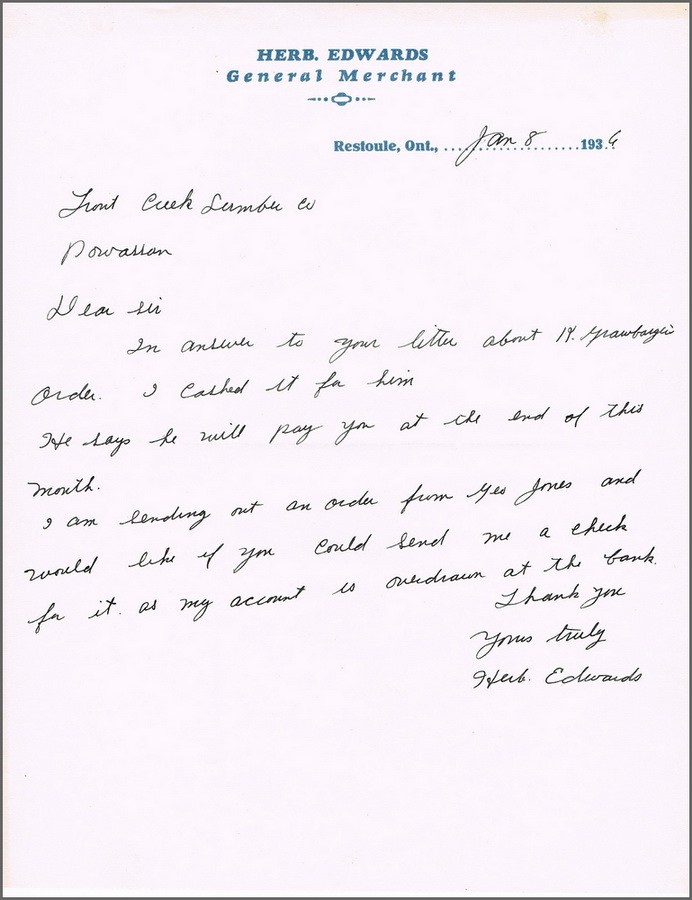 HERB. EDWARDS
General Merchant
Restoule, Ont., Jan 8 1936
Trout Creek Lumber Co
Powassan
Dear Sir
In answer to your letter about H.
Order. I Cashed it for him
He says he will pay you at the end of this
month.
I am sending out an order from Geo Jones and
would like if you could send me a check
for it. as my account is overdrawn at the bank.
Thank you
Yours truly
Herb. Edwards